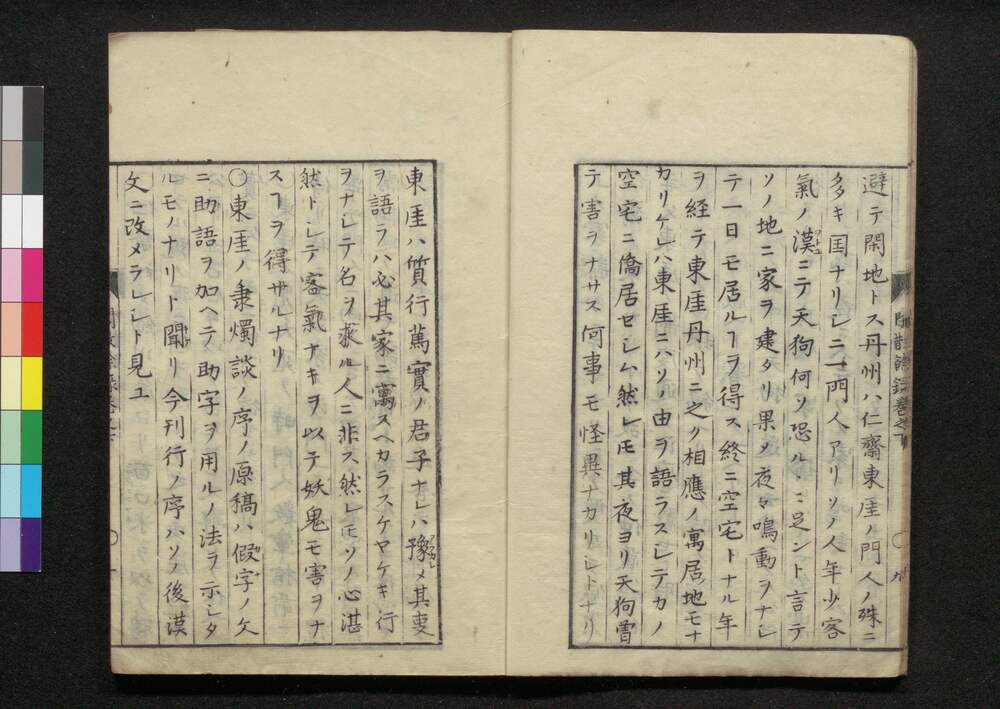 避テ閑地トス丹州ハ仁齋東厓ノ門人ノ殊ニ
多キ国ナリシニ一門人アリソノ人年少客
氣ノ漢ニテ天狗何ソ恐ルヽニ足ント言テ
ソノ地ニ家ヲ建タリ果〆夜々鳴動ヲナシ
テ一日モ居ルヿヲ得ス終ニ空宅トナル年
ヲ経テ東厓丹州ニ之ク相應ノ寓居ノ地モナ
カリケレハ東厓ニハソノ由ヲ語ラスシテカノ
空宅ニ僑居セシム然レ𪜈其夜ヨリ天狗曽
テ害ヲナサス何事モ怪異ナカリシトナリ
東厓ハ質行篤實ノ君子ナレハ豫メ其叓
ヲ語ラハ必其家ニ寓スヘカラスケヤケキ行
ヲナシテ名ヲ求ル人ニ非ス然レ𪜈ソノ心湛
然トシテ客氣ナキヲ以テ妖鬼モ害ヲナ
スヿヲ得サルナリ
〇東厓ノ秉燭談ノ序ノ原稿ハ假字ノ文
ニ助語ヲ加ヘテ助字ヲ用ルノ法ヲ示シタ
ルモノナリト聞リ今刊行ノ序ハソノ後漢
文ニ改メラレシト見ユ